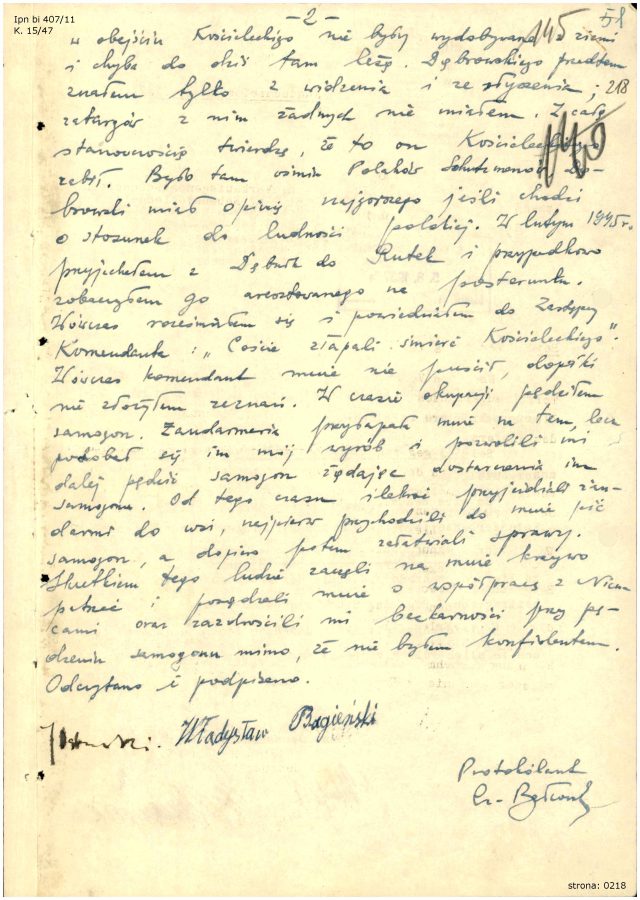 Ipn bi 407/11
K. 15/47
- 2 -
145
58
w obejściu Kościeleckiego nie były wydobywane z ziemi
i chyba do dziś tam leżą. Dąbrowskiego przedtem
znałem tylko z widzenia i ze słyszenia;
218
zatargów z nim żadnych nie miałem. Z całą
stanowczością twierdzę, że to on Kościeleckiego
zabił. Było tam ośmiu Polaków Schutzmanów. Do-
browski miał opinię najgorszego jeśli chodzi
o stosunek do ludności polskiej. W lutym 1945 r.
przyjechałem z do Rutek i przypadkowo
zobaczyłem go aresztowanego na posterunku.
Wówczas roześmiałem się i powiedziałem do Zastępcy
Komendanta: „Coście złapali śmierć Kościeleckiego".
Wówczas komendant mnie nie puścił, dopóki
nie złożyłem zeznań. W czasie okupacji pędziłem
samogon. Żandarmeria przyłapała mnie na tem, lecz
podobał się im mój wyrób i pozwolili mi
dalej pędzić samogon żądając dostarczenia im
samogonu. Od tego czasu ilekroć przyjeżdżali żan-
darmi do wsi, najpierw przychodzili do mnie pić
samogon, a dopiero potem załatwiali sprawy.
Skutkiem tego ludzie zaczęli na mnie krzywo
patrzeć i posądzali mnie o współpracę z Niem-
cami oraz zazdrościli mi bezkarności przy pę-
dzeniu samogonu mimo, że nie byłem konfidentem.
Odczytano i podpisano.
Władysław Bagieński
Protokólant
Cz.
strona: 0218